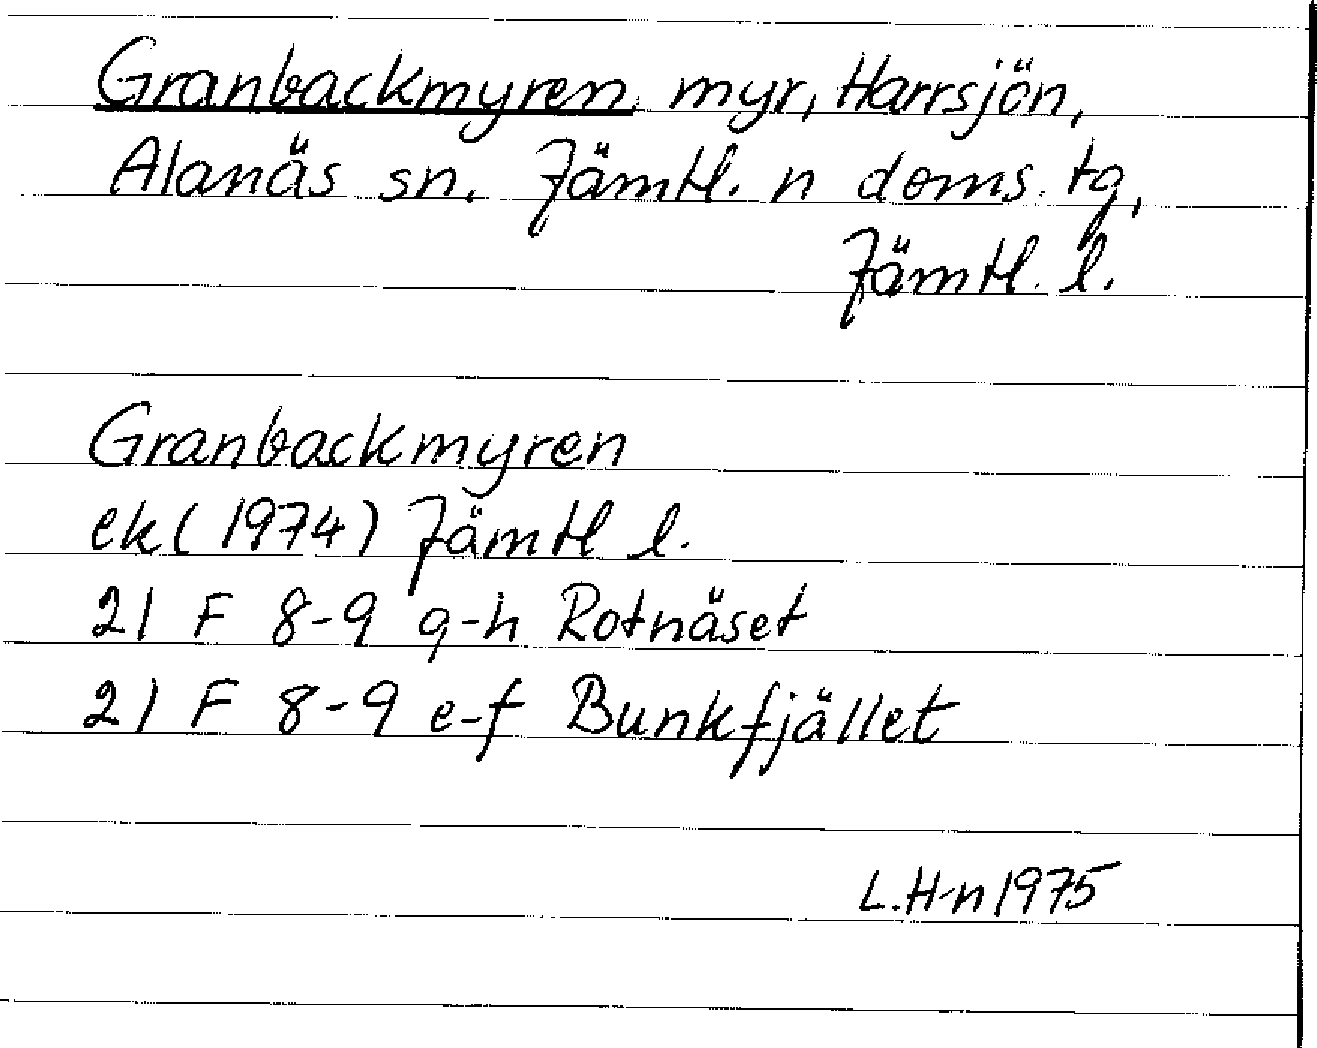 Granbackmyren, myr, Harrsjön,
Alanäs sn. Jämtl. n doms. tg,
Jämtl. l.
Granbackmyren
ek (1974) Jämtl l.
21 F 8-9 g-h Rotnäset
21 F 8-9 e-f Bunkfjället
L.H-n 1975